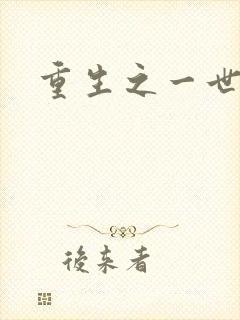 重生之一世
後来者